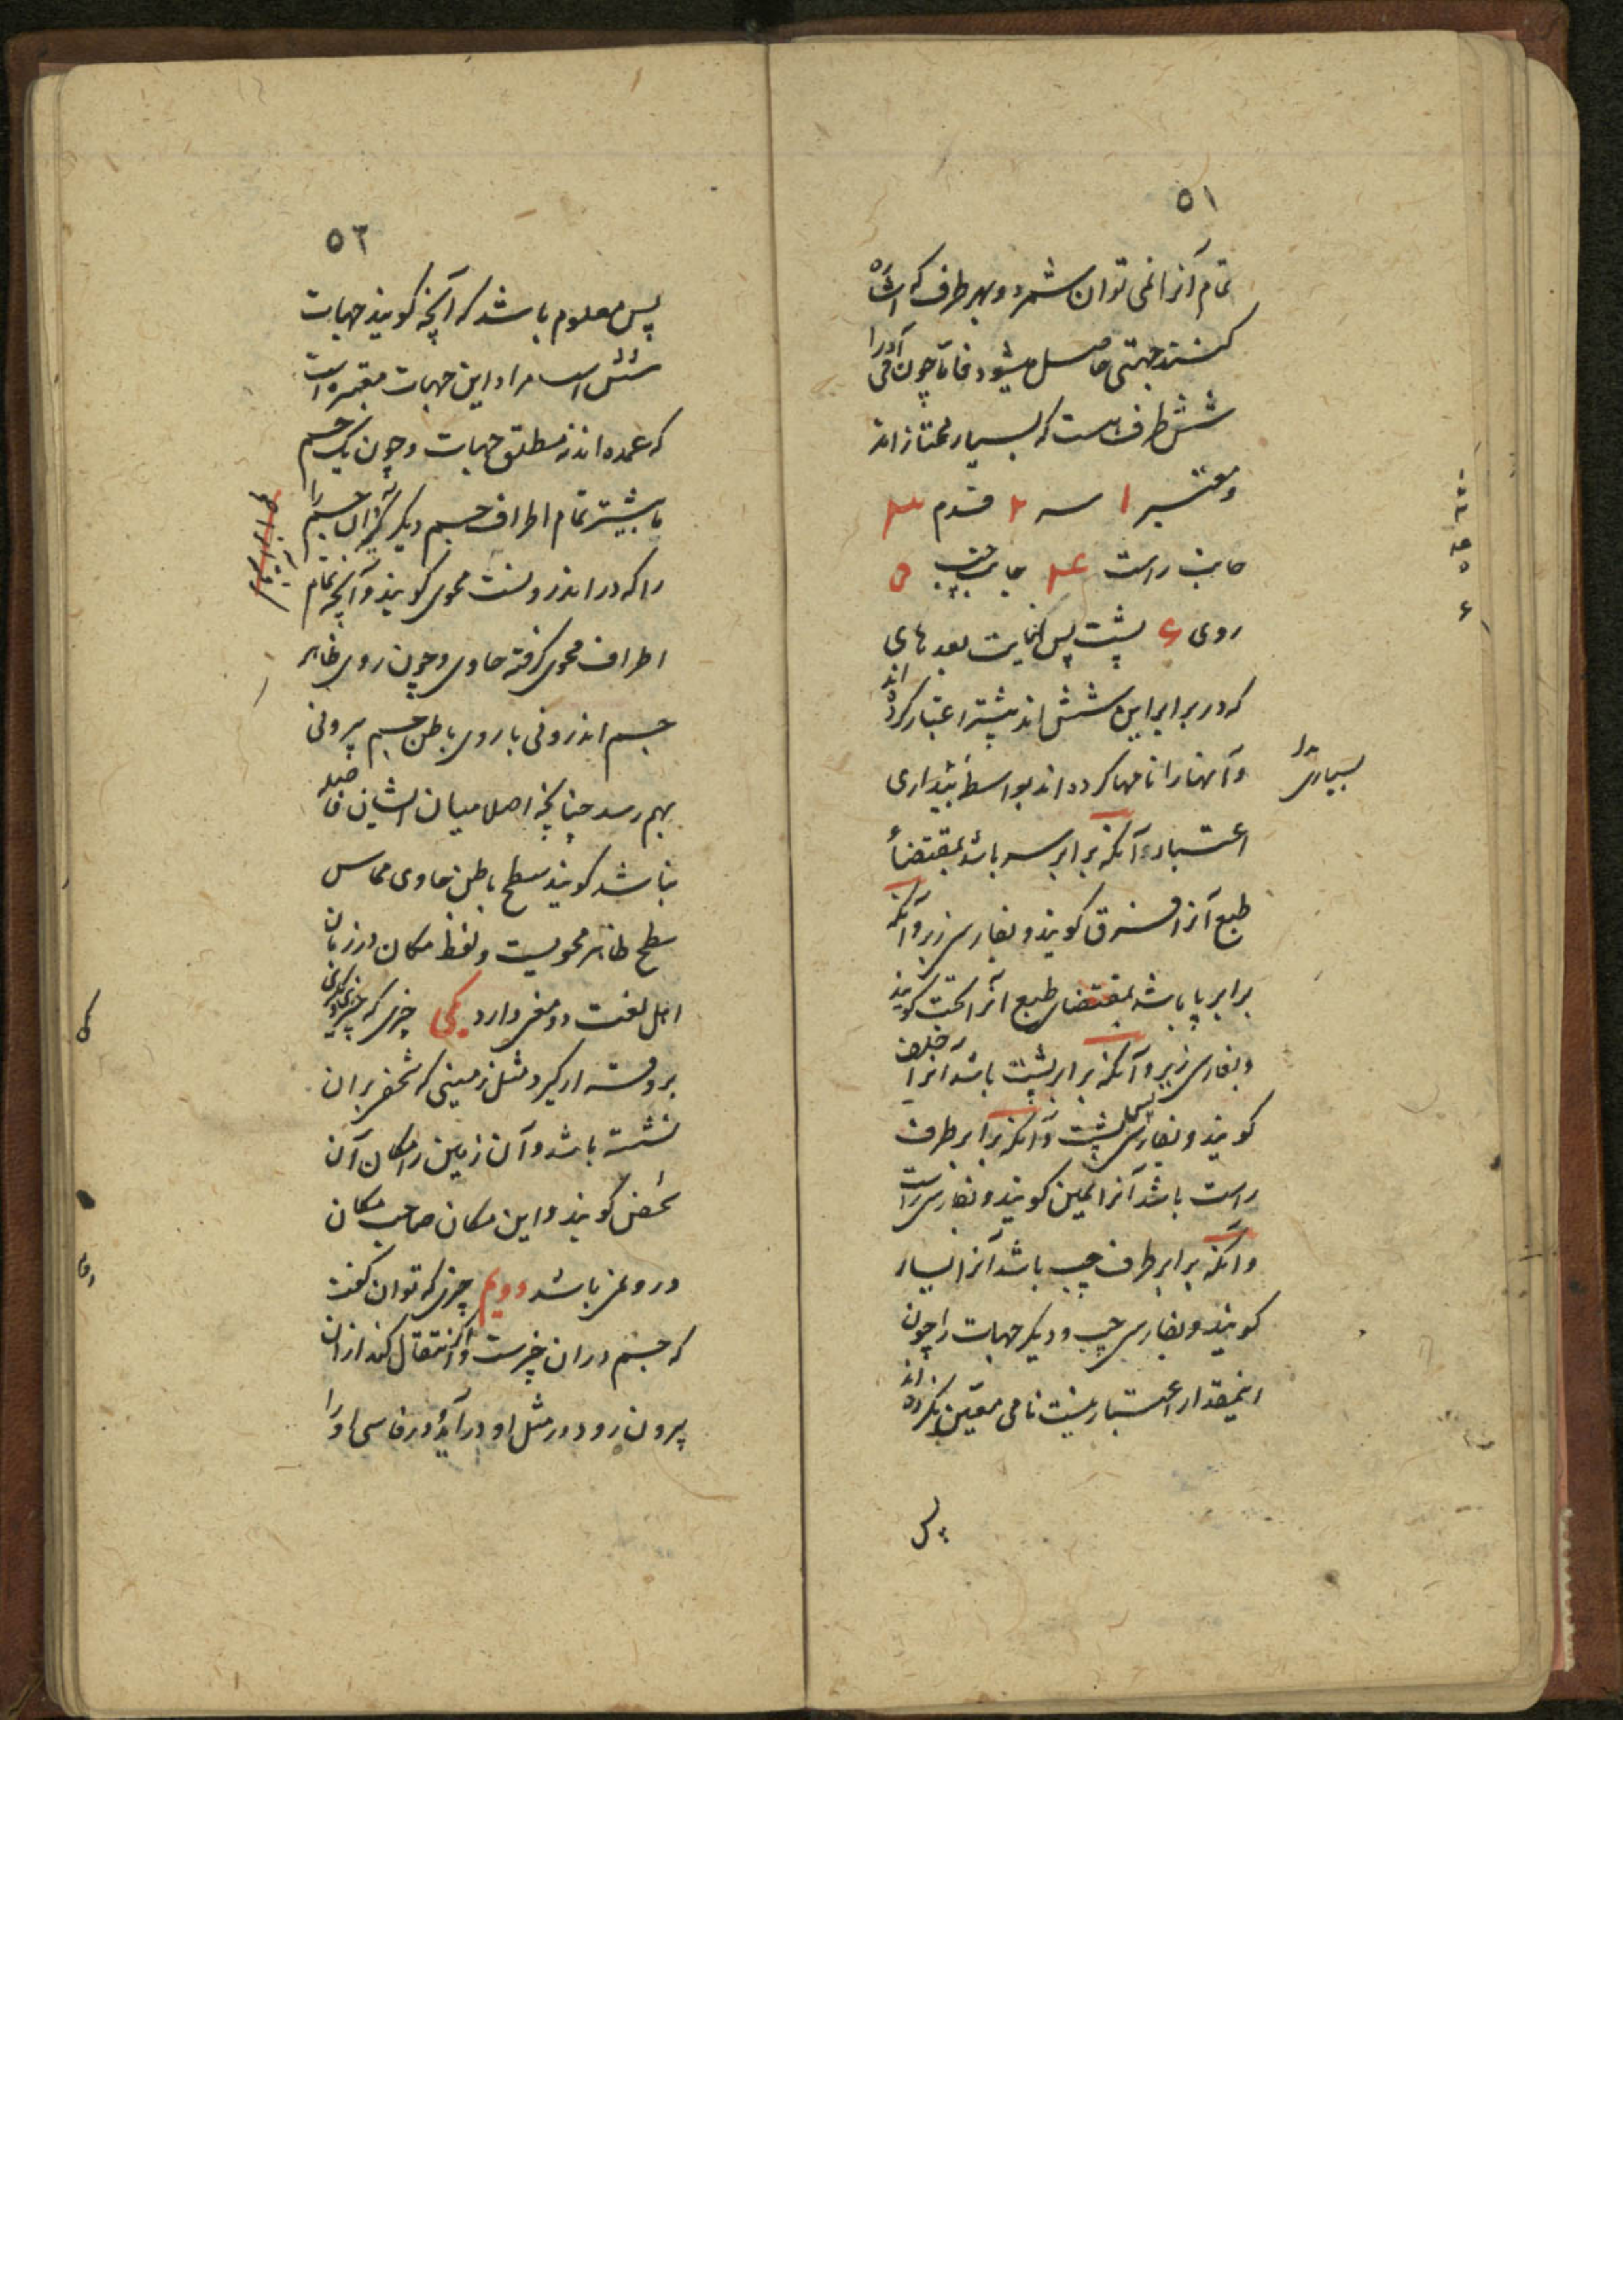 ٥١
تمام آنرا نمی توان شمرد و بهر طرف که اشاره
کنند جهتی حاصل میشود فاما چون آدمی را
شش طرف است که بسیار ممتازاند
و معتبر ١ سر ٢ قدم ٣
جانب راست ۴ جانب چپ ٥
روی ۶ پشت پس نهایت بعدهای
که در برابر این شش اند بیشتر اعتبار کرده اند
و آنها را نامها کرده اند بواسطه
بسیاری
اعتبار و آنکه برابر سر باشد بمقتضاء
طبع آنرا فوق گویند و بفارسی زبر و آنکه
برابر پا باشد بمقتضای طبع آنرا تحت گویند
و بفارسی زیر و آنکه برابر پشت باشد آنرا خلف
گویند و بفارسی پس پشت و آنکه برابر طرف
راست باشد آنرا یمین گویند و بفارسی راست
و آنکه برابر طرف چپ باشد آنرا یسار
گویند و بفارسی چپ و دیگر جهات را چون
اینمقدار اعتبار نیست نامی معین نکرده اند
پس
٥٢
پس معلوم باشد که آنچه گویند جهات
شش است مراد این جهات معتبره است
که عمده اند نه مطلق جهات و چون یک جسم
یا بیشتر تمام اطراف جسم دیگر گیرد آن جسم را
را که در اندرونست محوی گویند و آنچه تمام
اطراف محوی گرفته حاوی و چون روی ظاهر
جسم اندرونی با روی باطن جسم بیرونی
بهم رسد چنانچه اصلا میان ایشان فاصله
نباشد گویند سطح باطن حاوی مماس
سطح ظاهر محویست و لفظ مکان در زبان
اهل لغت دو معنی دارد یکی چیزی که چیزی دیگر
برو قرار گیرد مثل زمینی که شخص بران
نشسته باشد و آن زمین را مکان آن
شخص گویند و این مکان صاحب مکان
درو نمی باشد دویم چیزی که توان گفت
که جسم دران چیزست و اگر انتقال کند ازان
بیرون رود و در مثل او در آید و در فارسی او را